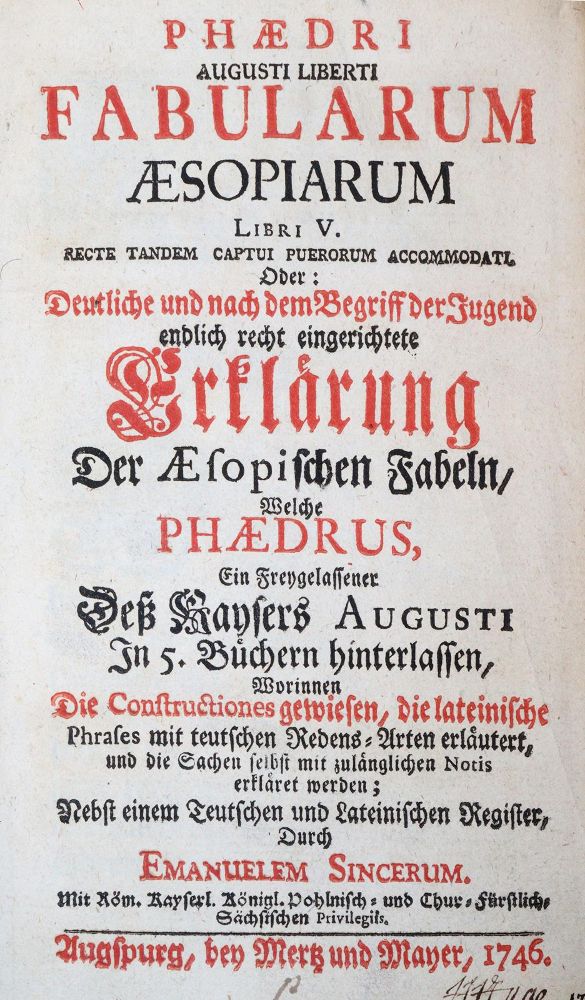 PHÆDRI
AUGUSTI LIBERTI
FABULARUM
ÆSOPIARUM
LIBRI V.
RECTE TANDEM CAPTUI PUERORUM ACCOMMODATI.
Oder:
Deutliche und nach dem Begriff der Jugend
endlich recht eingerichtete
Erklärung
Der Æsopischen Fabeln/
Welche
PHÆDRUS,
Ein Freygelassener
Deß Kaysers AUGUSTI
In 5. Büchern hinterlassen,
Worinnen
Die Constructiones gewiesen, die lateinische
Phrases mit teutschen Redens-Arten erläutert,
und die Sachen selbst mit zulänglichen Notis
erkläret werden;
Nebst einem Teutschen und Lateinischen Register,
Durch
EMANUELEM SINCERUM.
Mit Röm. Kayserl. Königl. Pohlnisch- und Chur-Fürstlich-
Sächsischen Privilegiis.
Augspurg, bey Mertz und Mayer, 1746.